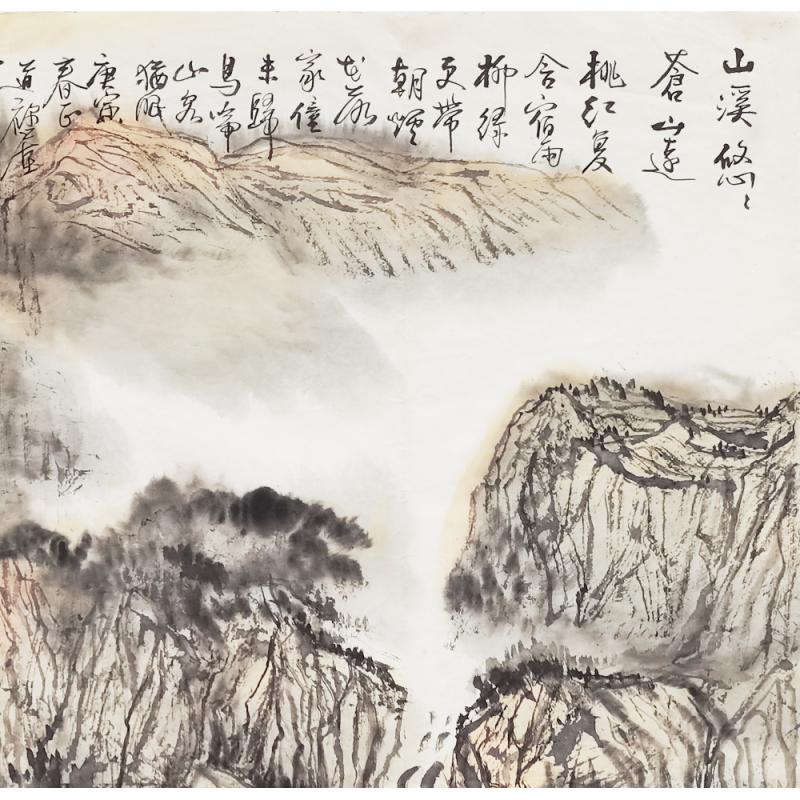 山溪悠々
蒼山遠
桃红复
含宿雨
柳绿
更带
朝煙
花落
家僮
未歸
鳥啼
山客
猶眠
庚寅
春正
道